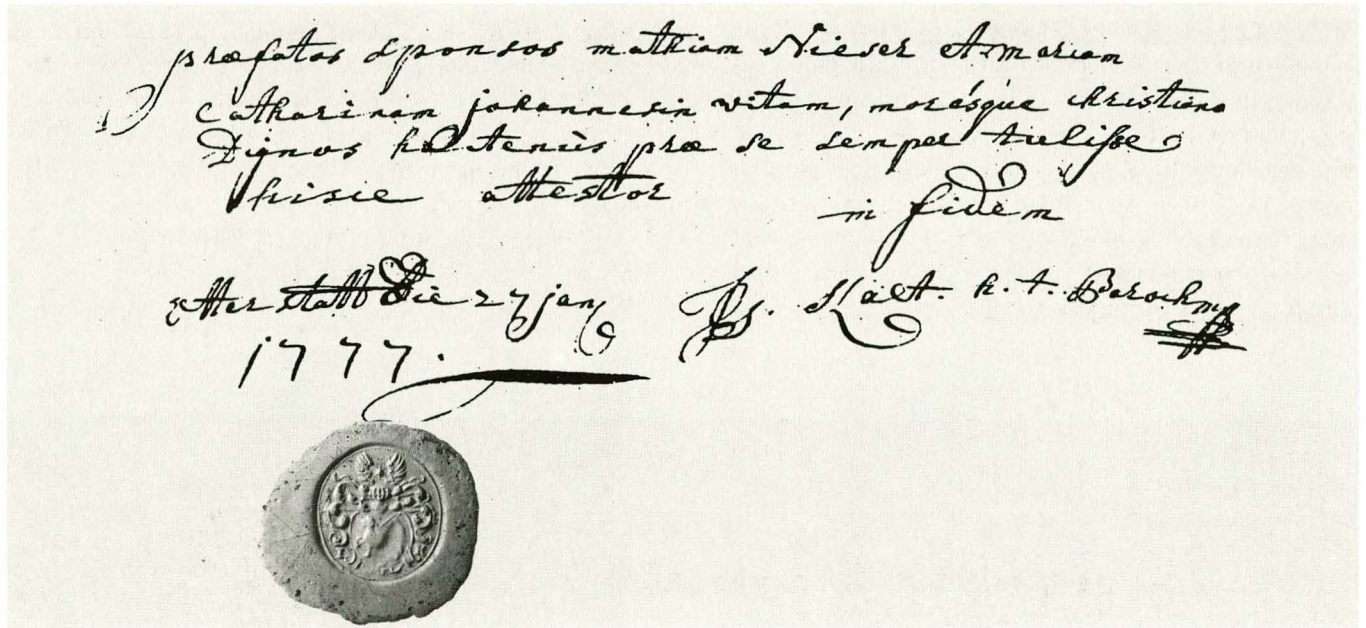 præfatos Sponsos mathiam Nieser et Mariam
Catharinam johannesin vitam, morésque christiano
Dignos hactenùs præ se semper tulisse
hisce attestor
in fidem
Etterstatt Die 27 jan
1777.
h. t. Parochus